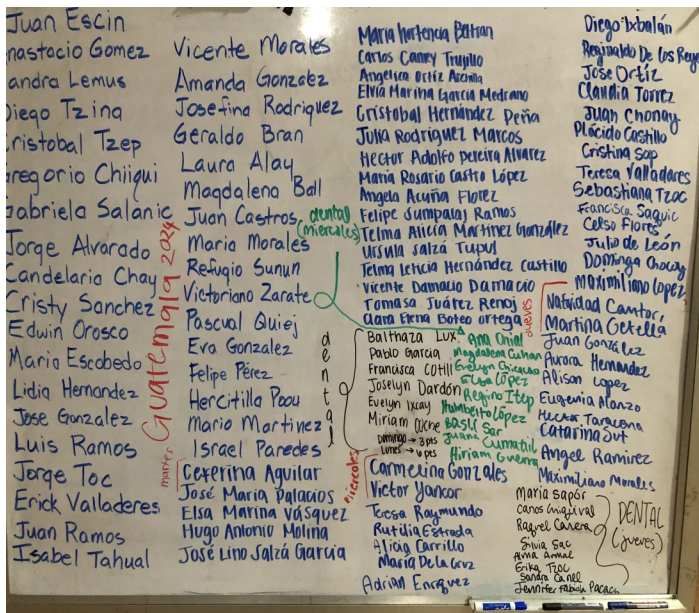 Juan Escin
nastacio Gomez
andra Lemus
Diego Tzina
ristobal Tzep
regorio Chiiqui
Gabriela Salanic
Jorge Alvarado
Candelaria Chay
Cristy Sanchez
Edwin Orosco
Mario Escobedo
Lidia Hernandez
Jose Gonzalez
Luis Ramos
Jorge Toc
Erick Valladeres
Juan Ramos
Isabel Tahual
Guatemala 2024
Vicente Morales
Amanda Gonzalez
Josefina Rodriquez
Geraldo Bran
Laura Alay
Magdalena Ball
Juan Castros
Maria Morales
Refugio Sunun
Victoriano Zarate
Pascual Quiej
Eva Gonzalez
Felipe Pérez
Hercitilla Poou
Mario Martinez
Israel Paredes
martes
Ceferina Aguilar
José Maria Palacios
Elsa Marina Vásquez
Hugo Antonio Molina
José Lino Salzá García
dental
(miercoles)
Maria hortencia Beltran
Carlos Caney Trujillo
Angelica Ortiz Archila
Elvia Marina García Medrano
Cristobal Hernández Peña
Julia Rodríguez Marcos
Hector Adolfo pereira Alvarez
María Rosario Castro López
Angela Acuña Florez
Felipe Sumpalaj Ramos
Telma Alicia Martínez González
Ursula Salzá Tupul
Telma Leticia Hernández Castillo
Vicente Damacio Damacio
Tomasa Juárez Renoj
Clara Elena Boteo ortega
dental
Balthaza Lux
Pablo Garcia
Francisca
Joselyn Dardón
Evelyn Ixcay
Miriam
Domingo → 3 pts
Lunes → 6 pts
Ana
Magdalena
Evelyn
Elsa López
Regino Itep
Humberto López
Sar
Juana Cumatil
Hiriam Guerra
miercoles
Carmelina Gonzales
Victor Yancor
Teresa Raymundo
Rutilia Estrada
Alicia Carrillo
Maria De la Cruz
Adrian Enriquez
Diego Ixbalán
Reginaldo De los Reye
Jose Ortíz
Claudia Torrez
Juan Chonay
Plácido Castillo
Cristina Sop
Teresa Valladares
Sebastiana Tzoc
Francisca Saquic
Celso Flores
Julio de León
Dominga Chocoy
jueves
Maximiliano Lopez
Natividad Camtorí
Martina Getella
Juan González
Aurora Hernandez
Alison Lopez
Eugenia Alonzo
Hector Taracena
Catarina Sut
Angel Ramirez
Maximiliano Morales
Maria Sapór
Raquel
Silvia Sac
Alma
Erika Tzoc
Sandra Canel
Jennifer Fabiola Pacach
DENTAL
(jueves)